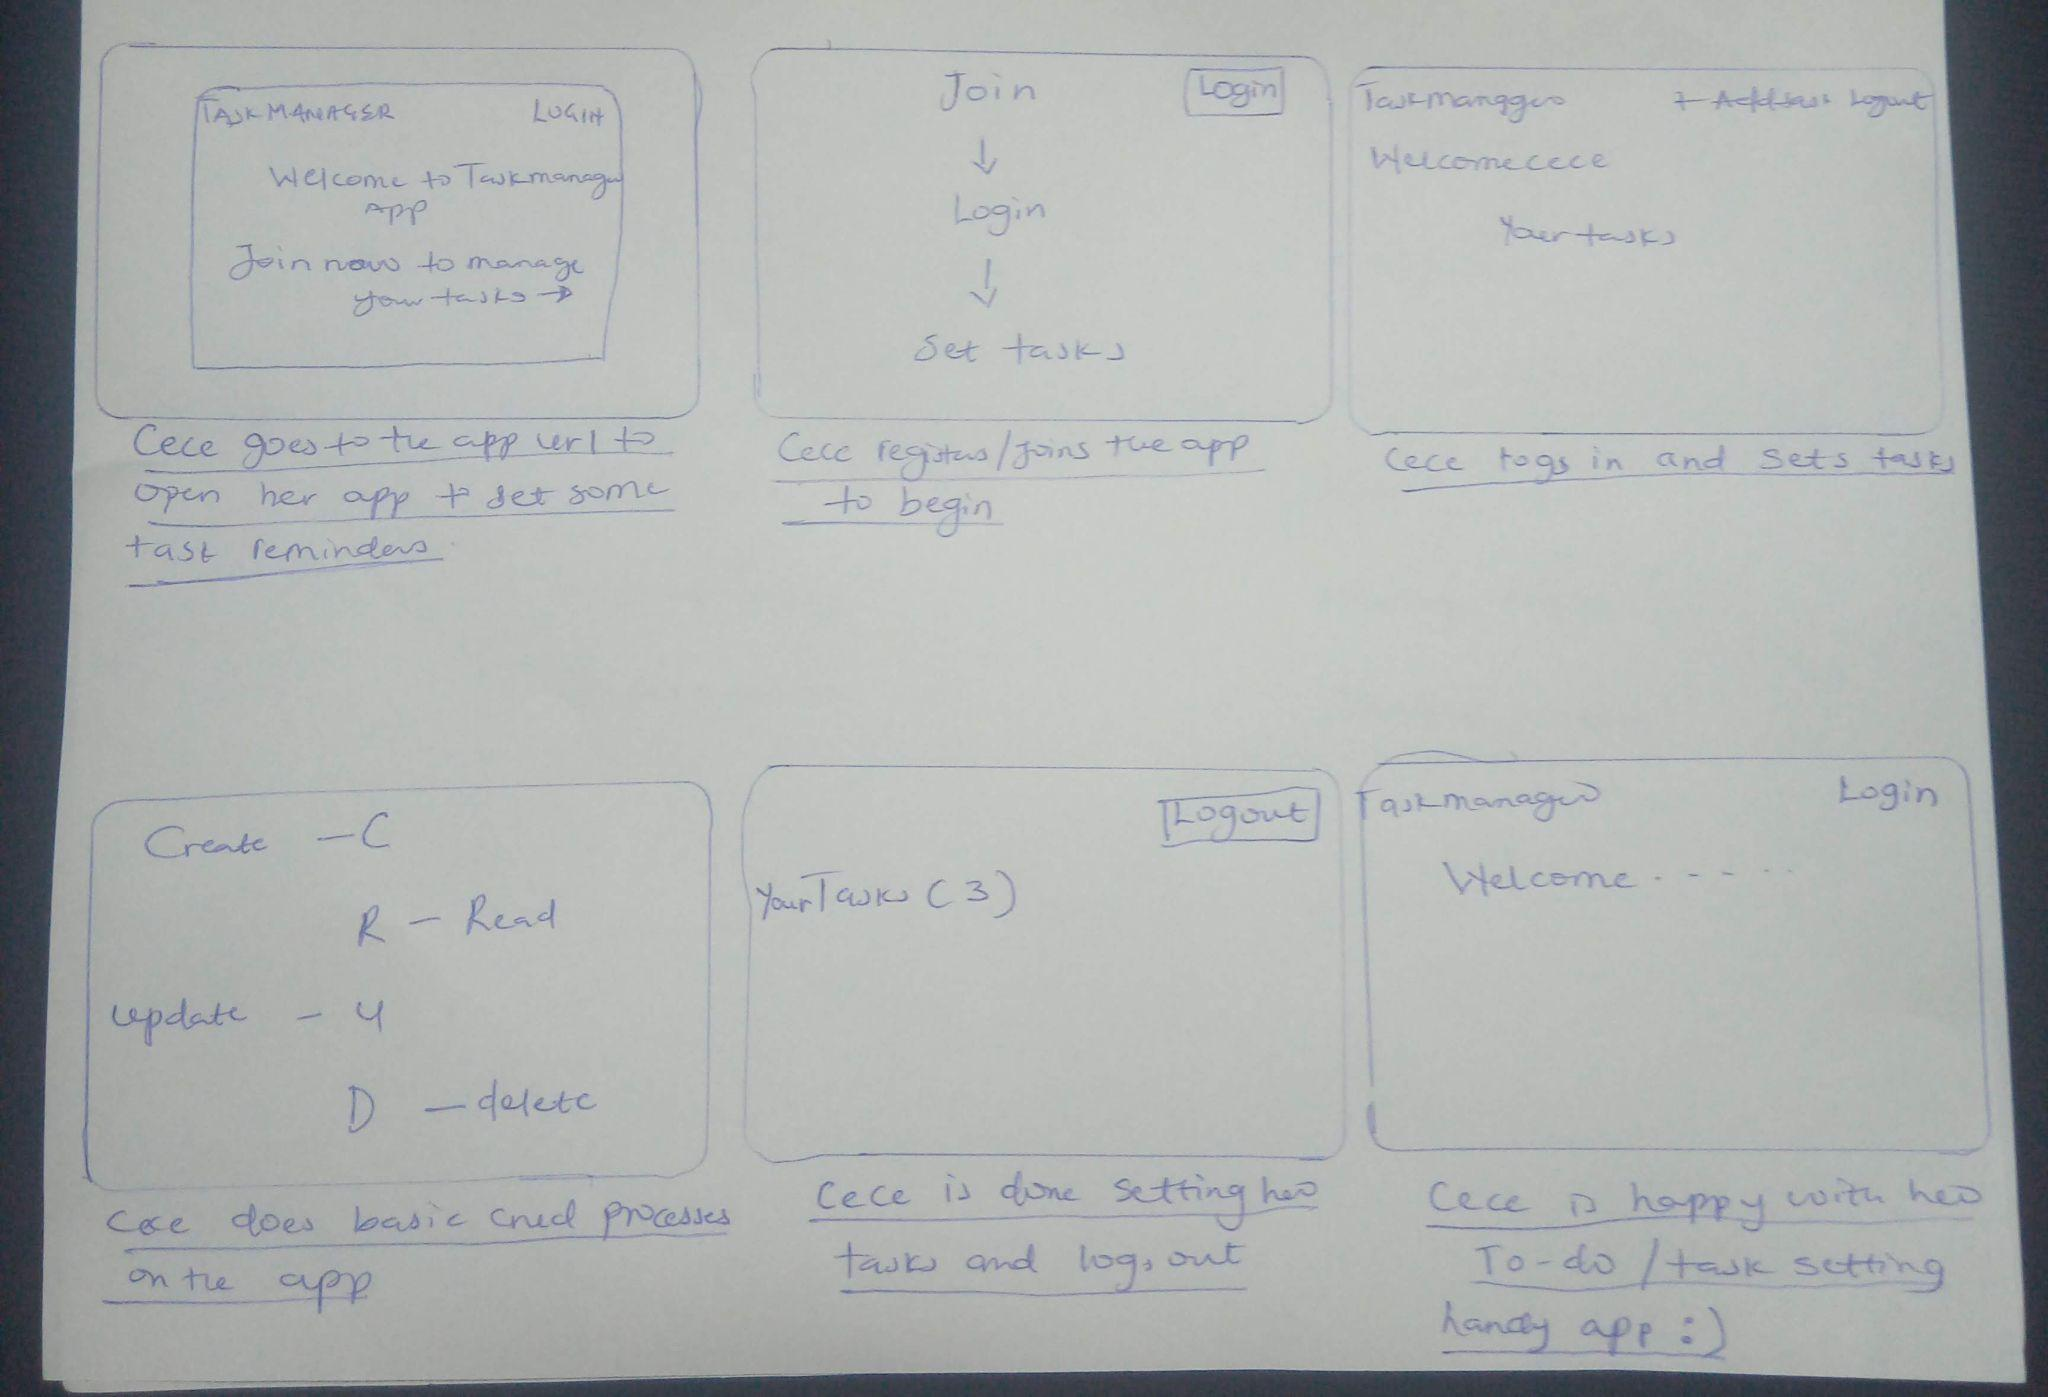 TASKMANAGER LOGIN
Welcome to Taskmanager
APP
Join now to manage
your tasks →
Cece goes to the app url to
open her app & set some
task reminders.
Join Login
↓
Login
↓
Set tasks
Cece registers/joins the app
to begin
Taskmanager + Add task Logout
Welcome cece
Your tasks
Cece logs in and sets tasks
Create - C
R - Read
update - U
D - delete
Cece does basic crud processes
on the app
Logout
Your Tasks (3)
Cece is done setting her
tasks and logs out
Taskmanager Login
Welcome . - - - . .
Cece is happy with her
To-do / task setting
handy app :)